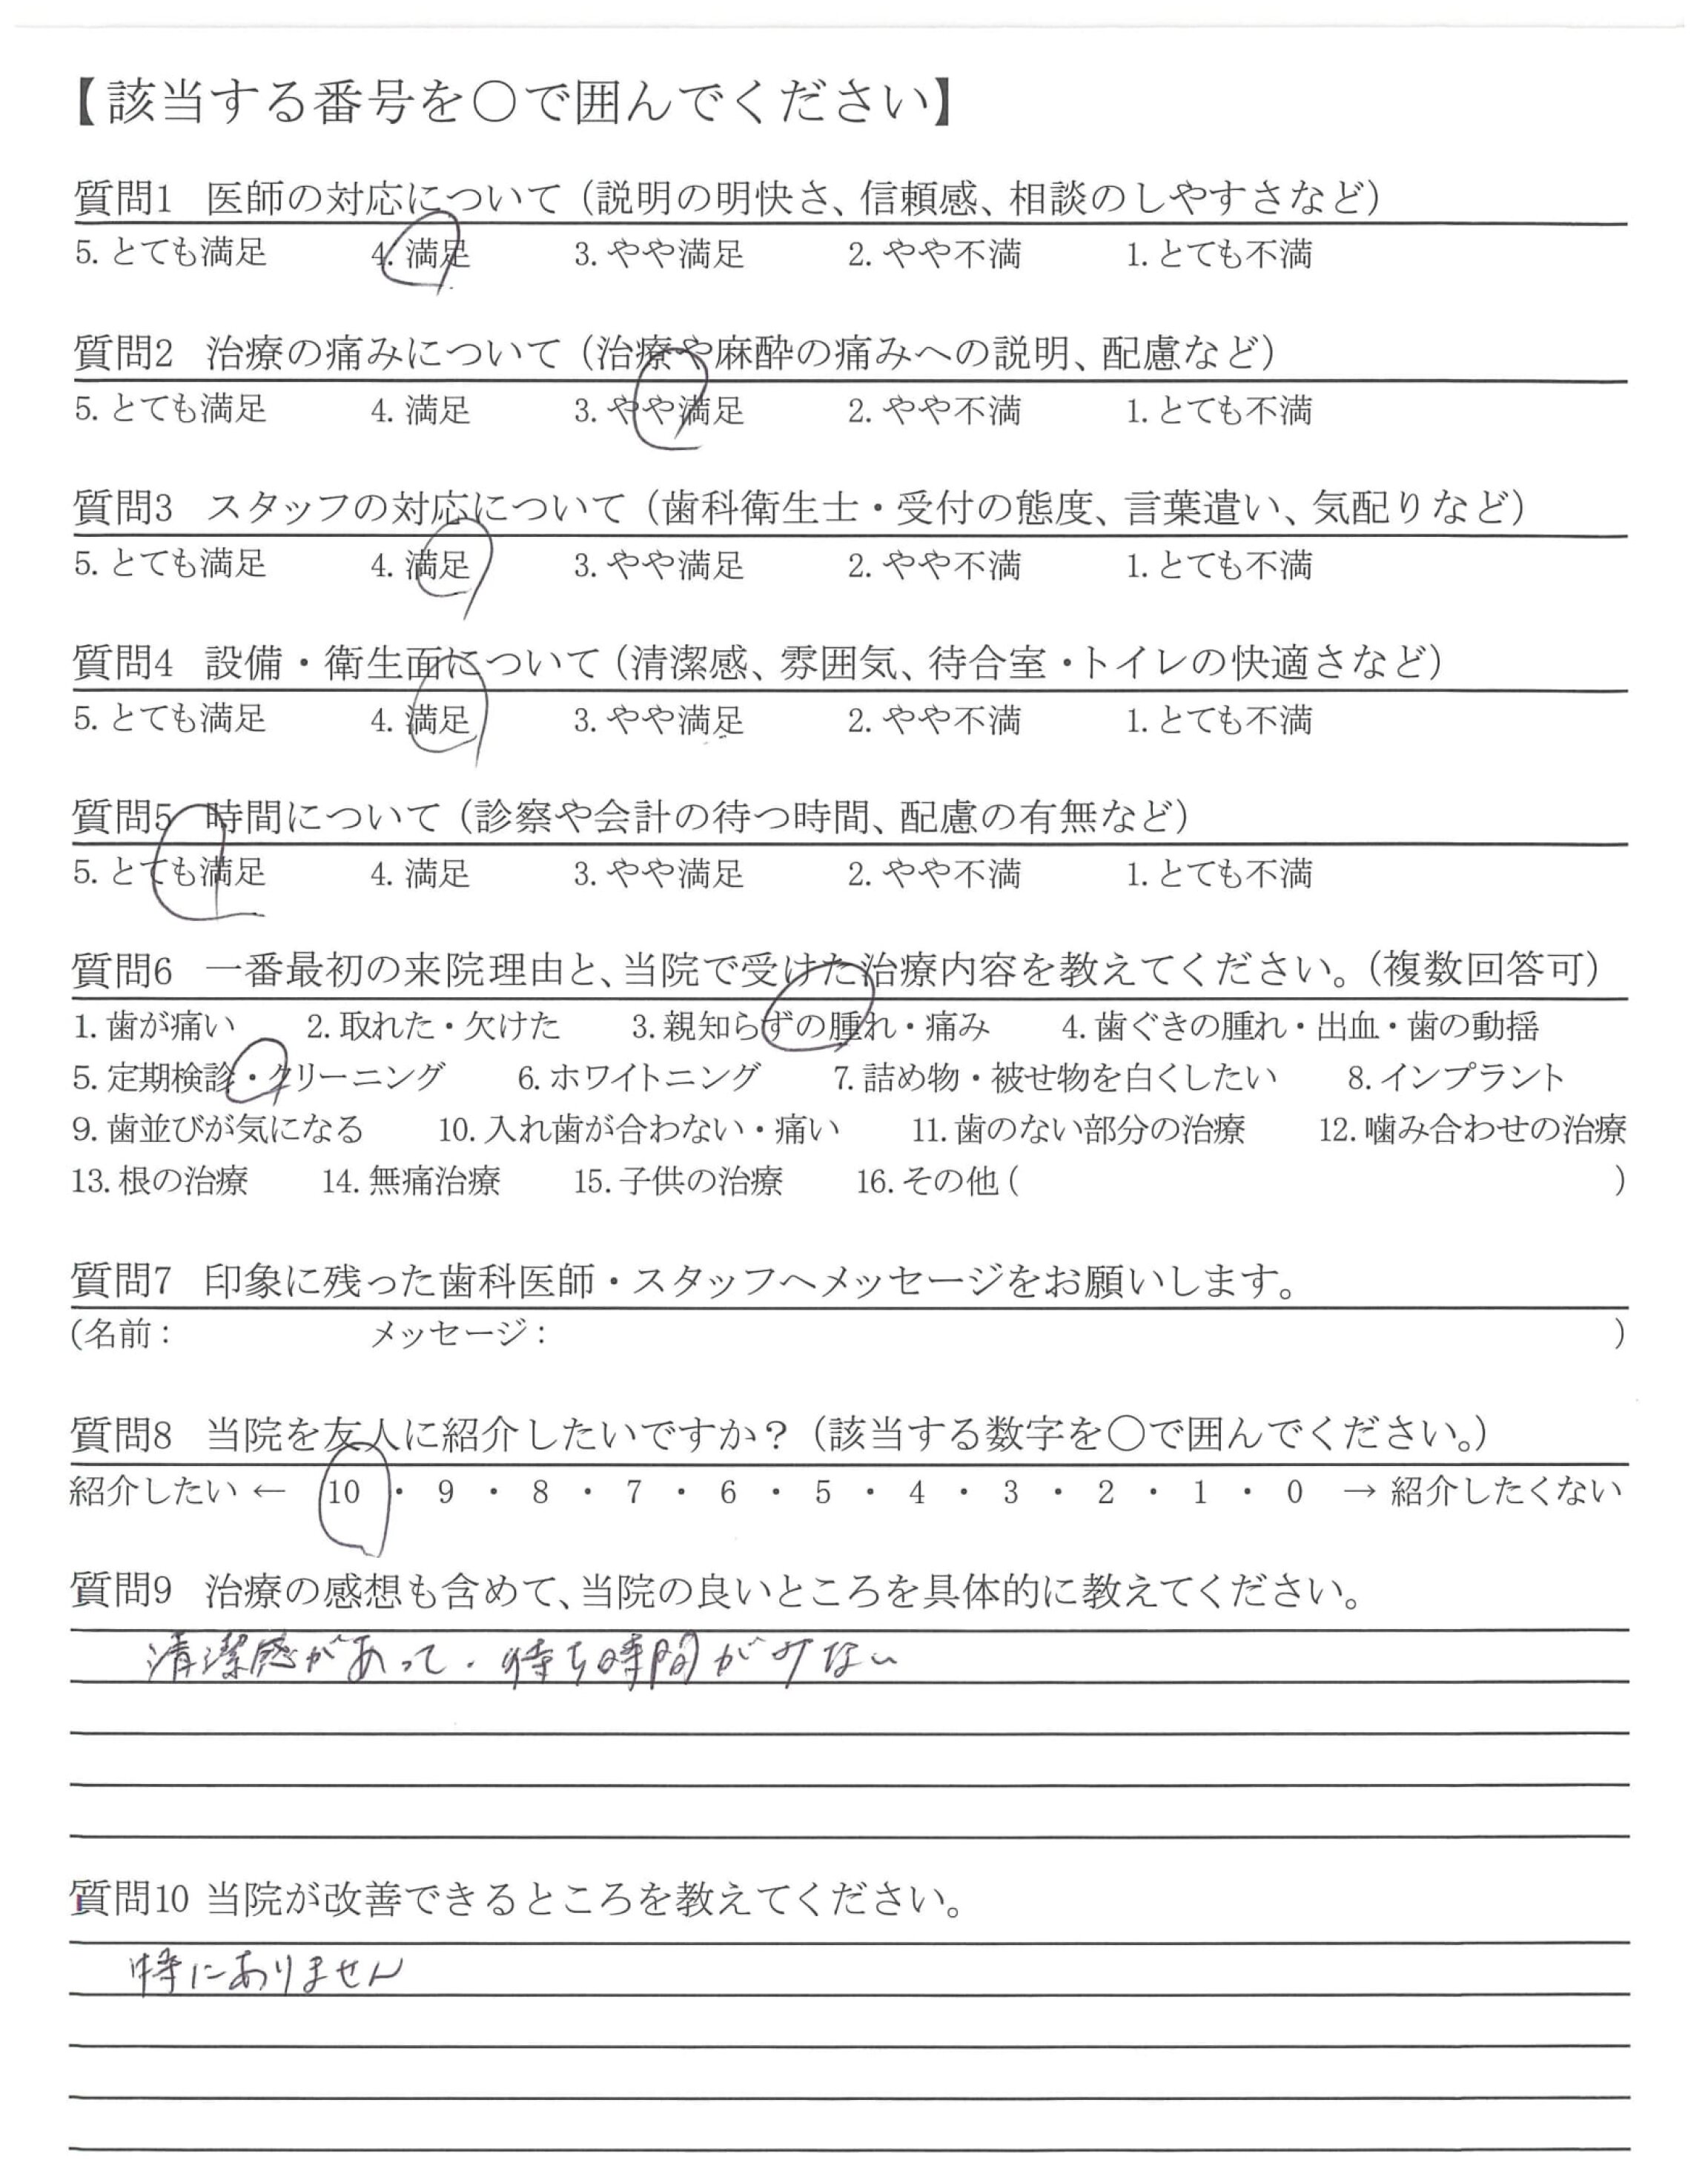 【該当する番号を○で囲んでください】
質問1 医師の対応について（説明の明快さ、信頼感、相談のしやすさなど）
5. とても満足 4. 満足 3. やや満足 2. やや不満 1. とても不満
質問2 治療の痛みについて（治療や麻酔の痛みへの説明、配慮など）
5. とても満足 4. 満足 3. やや満足 2. やや不満 1. とても不満
質問3 スタッフの対応について（歯科衛生士・受付の態度、言葉遣い、気配りなど）
5. とても満足 4. 満足 3. やや満足 2. やや不満 1. とても不満
質問4 設備・衛生面について（清潔感、雰囲気、待合室・トイレの快適さなど）
5. とても満足 4. 満足 3. やや満足 2. やや不満 1. とても不満
質問5 時間について（診察や会計の待つ時間、配慮の有無など）
5. とても満足 4. 満足 3. やや満足 2. やや不満 1. とても不満
質問6 一番最初の来院理由と、当院で受けた治療内容を教えてください。（複数回答可）
1. 歯が痛い 2. 取れた・欠けた 3. 親知らずの腫れ・痛み 4. 歯ぐきの腫れ・出血・歯の動揺
5. 定期検診・クリーニング 6. ホワイトニング 7. 詰め物・被せ物を白くしたい 8. インプラント
9. 歯並びが気になる 10. 入れ歯が合わない・痛い 11. 歯のない部分の治療 12. 噛み合わせの治療
13. 根の治療 14. 無痛治療 15. 子供の治療 16. その他（ ）
質問7 印象に残った歯科医師・スタッフへメッセージをお願いします。
（名前： メッセージ： ）
質問8 当院を友人に紹介したいですか？（該当する数字を○で囲んでください。）
紹介したい ← 10 ・ 9 ・ 8 ・ 7 ・ 6 ・ 5 ・ 4 ・ 3 ・ 2 ・ 1 ・ 0 → 紹介したくない
質問9 治療の感想も含めて、当院の良いところを具体的に教えてください。
清潔感があって、待ち時間が少ない
質問10 当院が改善できるところを教えてください。
特にありません